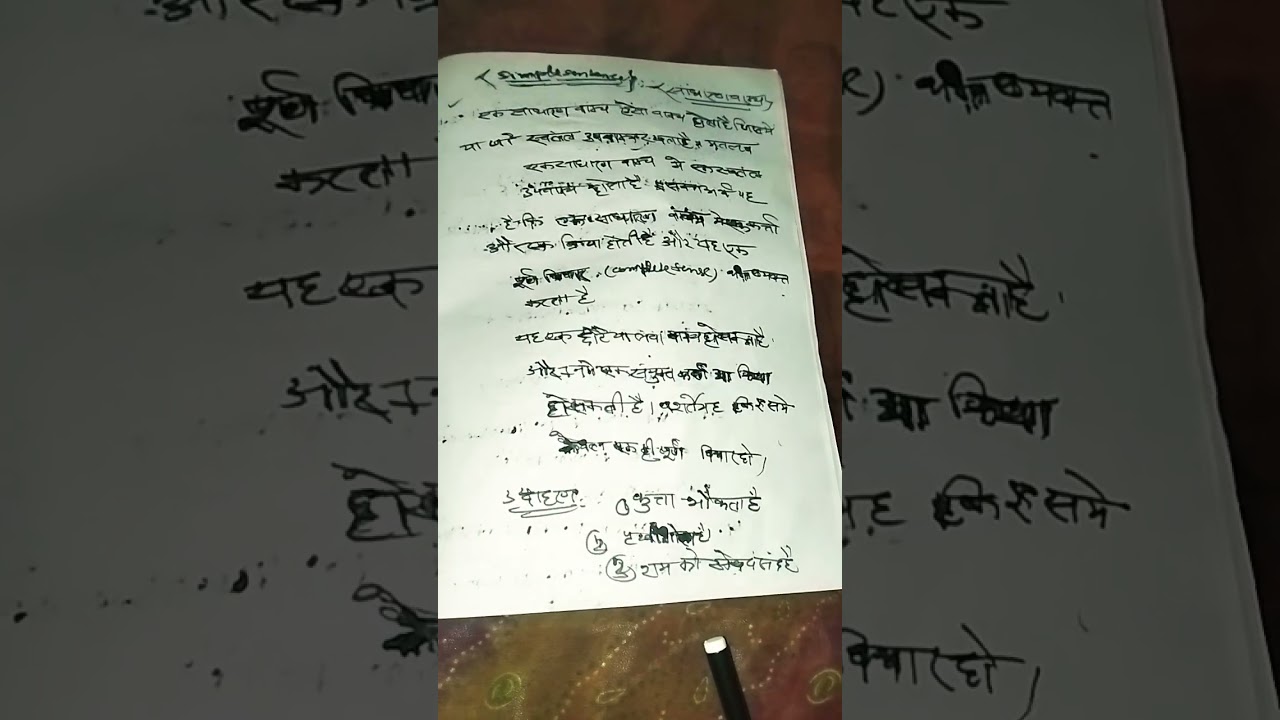 (Simple sentence) : (साधारण वाक्य)
एक साधारण वाक्य ऐसा वाक्य होता है जिसमे
या जो स्वतंत्र उपवाक्य है मतलब
एक साधारण वाक्य मे एक स्वतंत्र
उपवाक्य होता है इसका अर्थ यह
है कि एक साधारण वाक्य मे एक कर्ता
और एक क्रिया होती है और यह एक
पूर्ण विचार (complete sense) को व्यक्त
करता है
यह एक छोटे या लंबा वाक्य हो सकता है
और इनमे एक संयुक्त कर्ता या क्रिया
हो सकती है। शर्त यह कि इसमे
केवल एक ही पूर्ण विचार हो,
उदाहरण:- 1) कुत्ता भौंकता है
2) पृथ्वी गोल है
3) राम को है